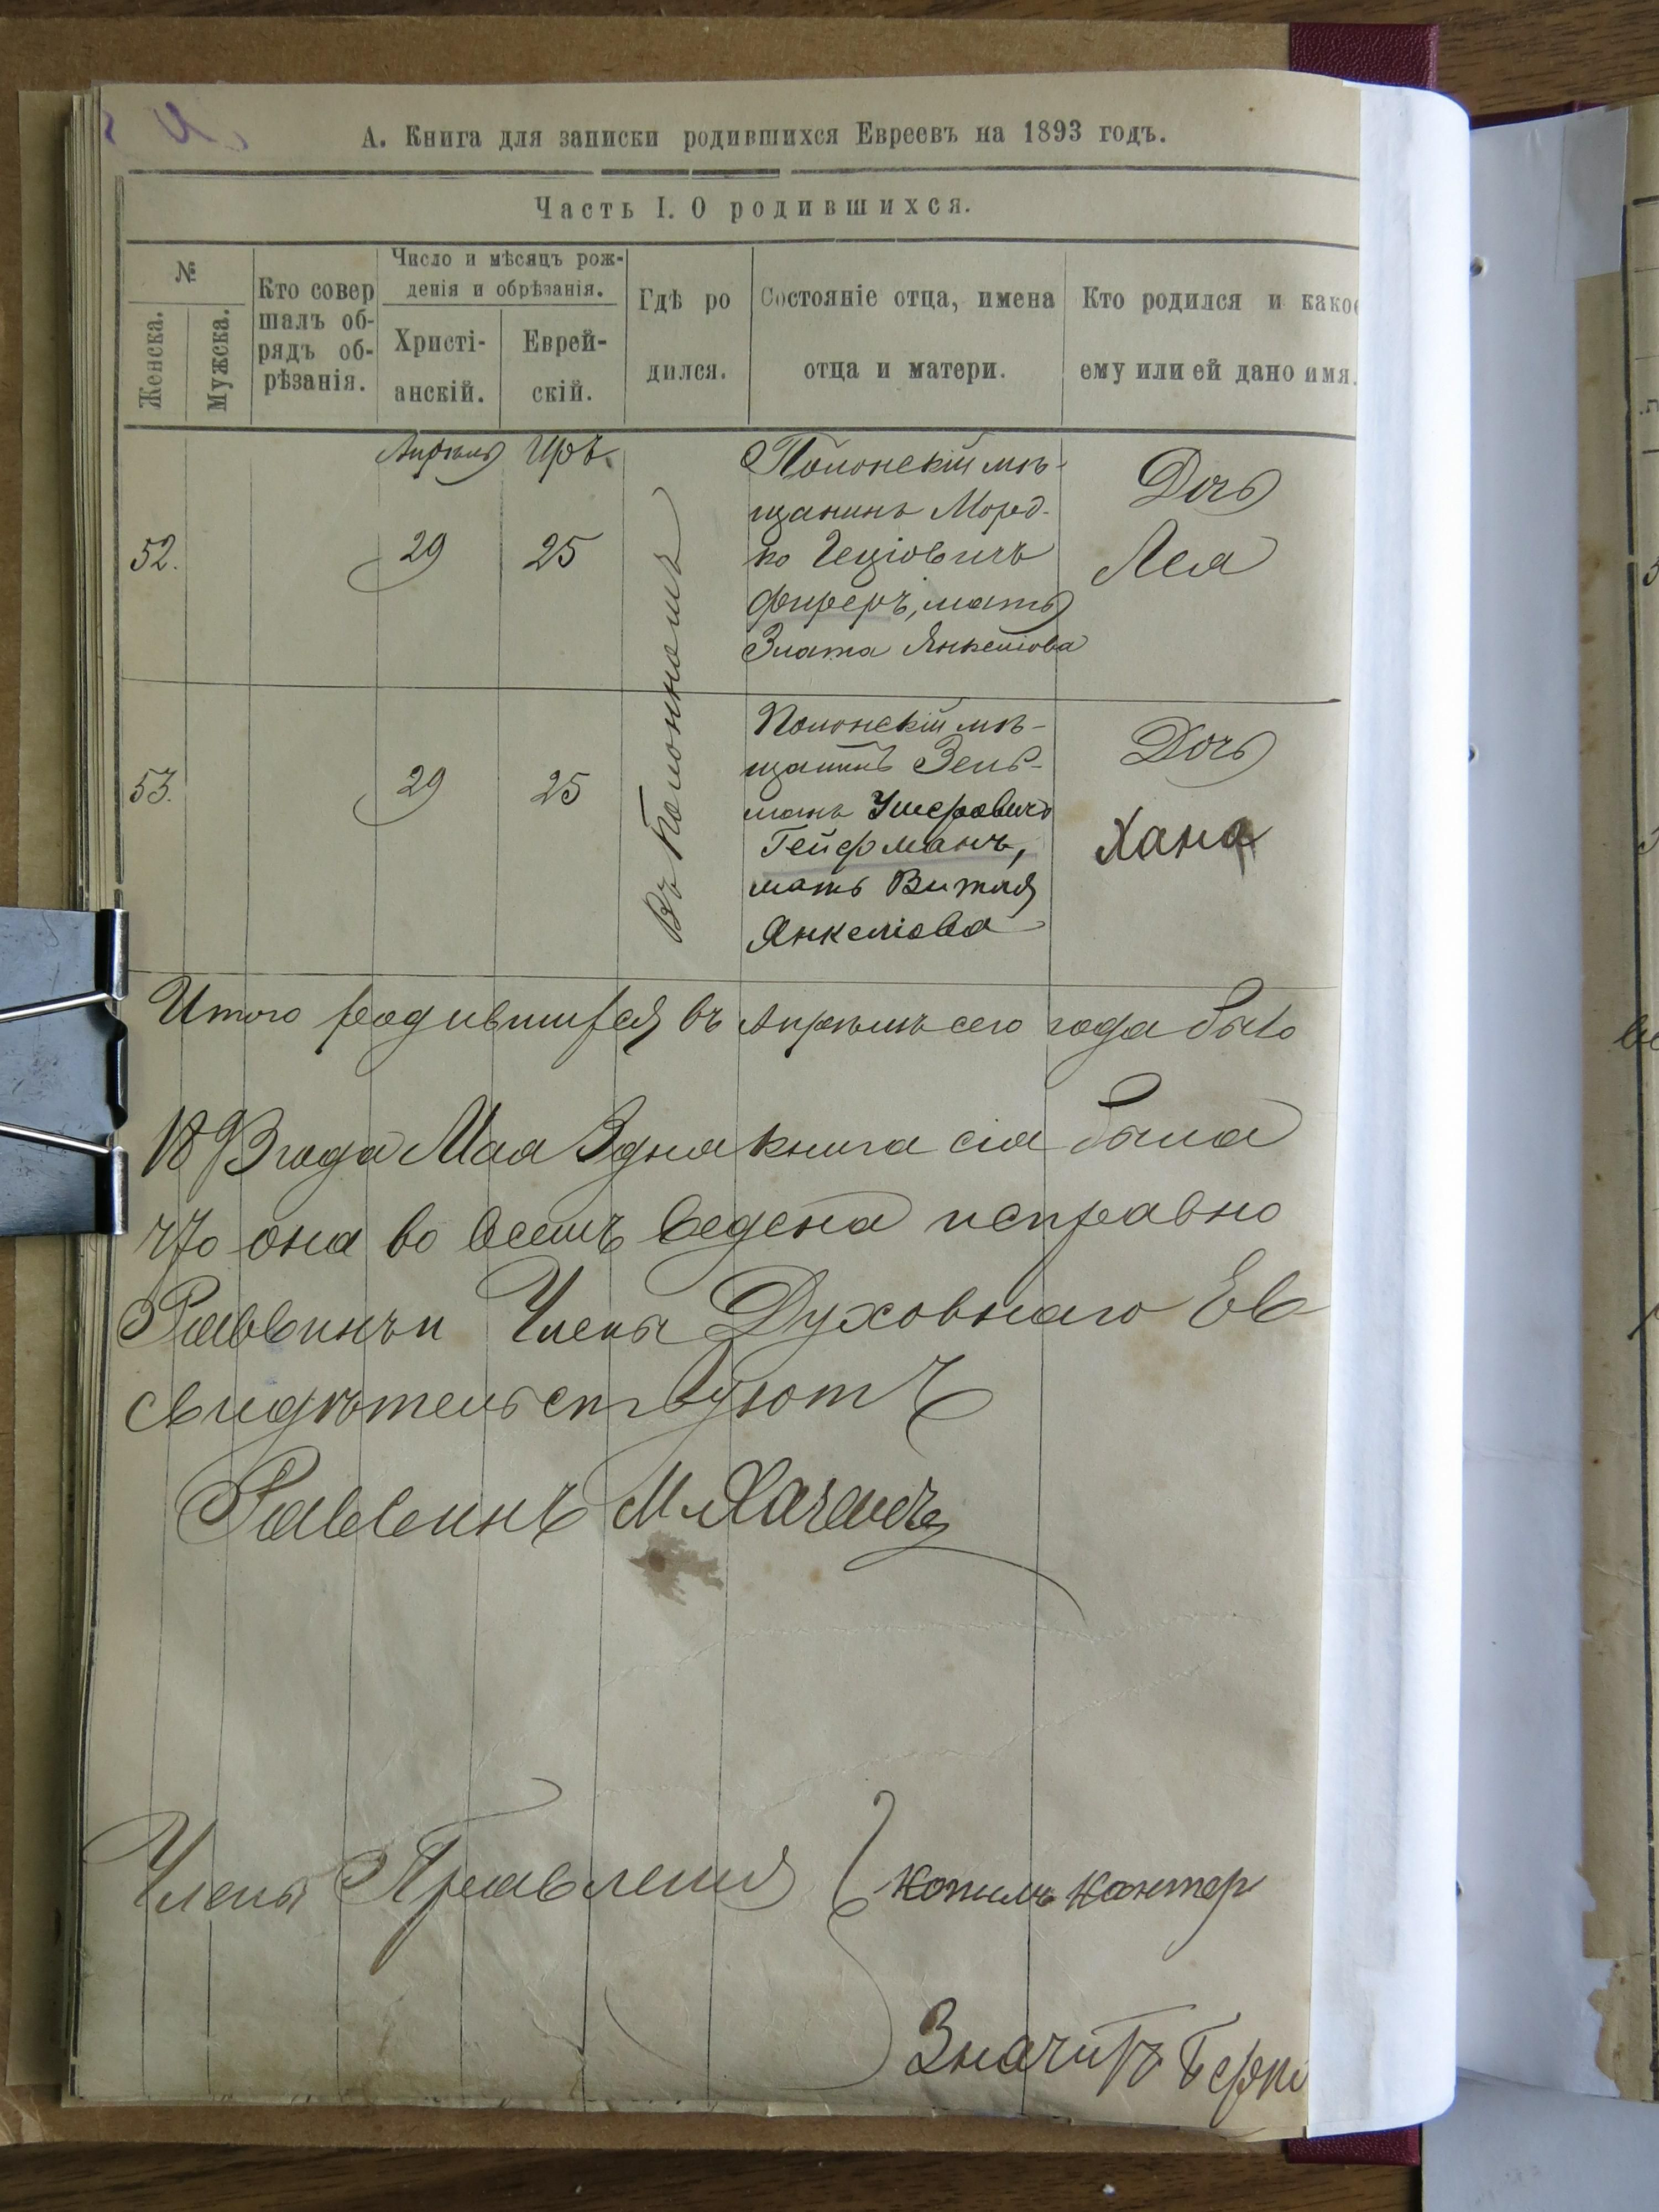 А. Книга для записки родившихся Евреевъ на 1893 годъ.
Часть I. О родившихся.
№
Женска.
Мужска.
Кто совер
шалъ об-
рядъ об-
рѣзанія.
Число и мѣсяцъ рож-
денія и обрѣзанія.
Христі-
анскій.
Еврей-
скій.
Гдѣ ро
дился.
Состояніе отца, имена
отца и матери.
Кто родился и какое
ему или ей дано имя.
Апрѣль Иръ
52.
29
25
Въ Полонномъ
Полонскій мѣ-
щанинъ Морд-
ко
Фиреръ, мать
Злата Янкеліова
Дочь
Лея
53.
29
25
Полонскій мѣ-
щанинъ Зель-
манъ Ушеровичъ
Гейфманъ,
мать Витля
Янкеліова
Дочь
Хана
Итого родившихся въ Апрѣлѣ сего года было
1893 года Мая 3 дня книга сія была
что она во всемъ ведена исправно
Раввинъ и Члены Духовнаго Ев
свидѣтельствуютъ
Раввинъ М
Члены Правленія
Кантер
Значитъ Берко